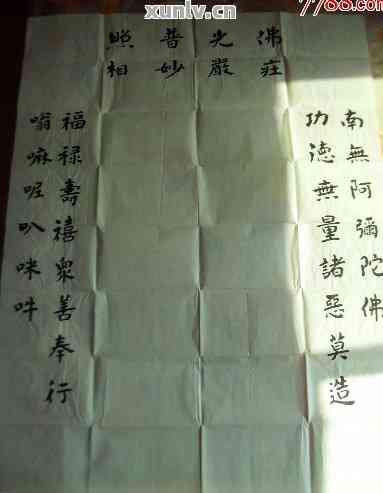 7788.com
xunlv.cn
佛光普照
庄嚴妙相
南無阿彌陀佛
功徳無量諸惡莫造
福禄壽禧衆善奉行
嗡嘛呢叭咪吽